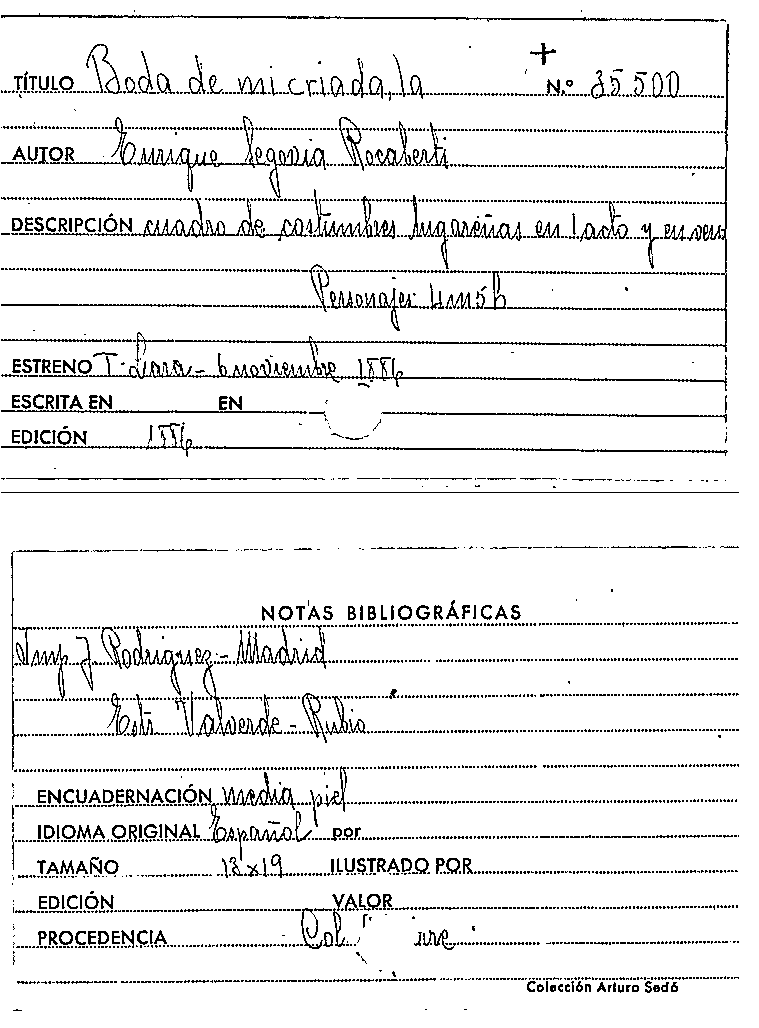 +
TÍTULO Boda de mi criada, la N.º 35500
AUTOR Enrique Segovia Rocaberti
DESCRIPCIÓN cuadro de costumbres lugareñas en 1 acto y en verso
Personajes 4m 5h
ESTRENO T. Lara - 6 noviembre 1886
ESCRITA EN EN
EDICIÓN 1886
NOTAS BIBLIOGRÁFICAS
Imp J. Rodriguez - Madrid
Estr Valverde - Rubio
ENCUADERNACIÓN media piel
IDIOMA ORIGINAL Español por
TAMAÑO 13x19 ILUSTRADO POR
EDICIÓN VALOR
PROCEDENCIA Col
Colección Arturo Sedó